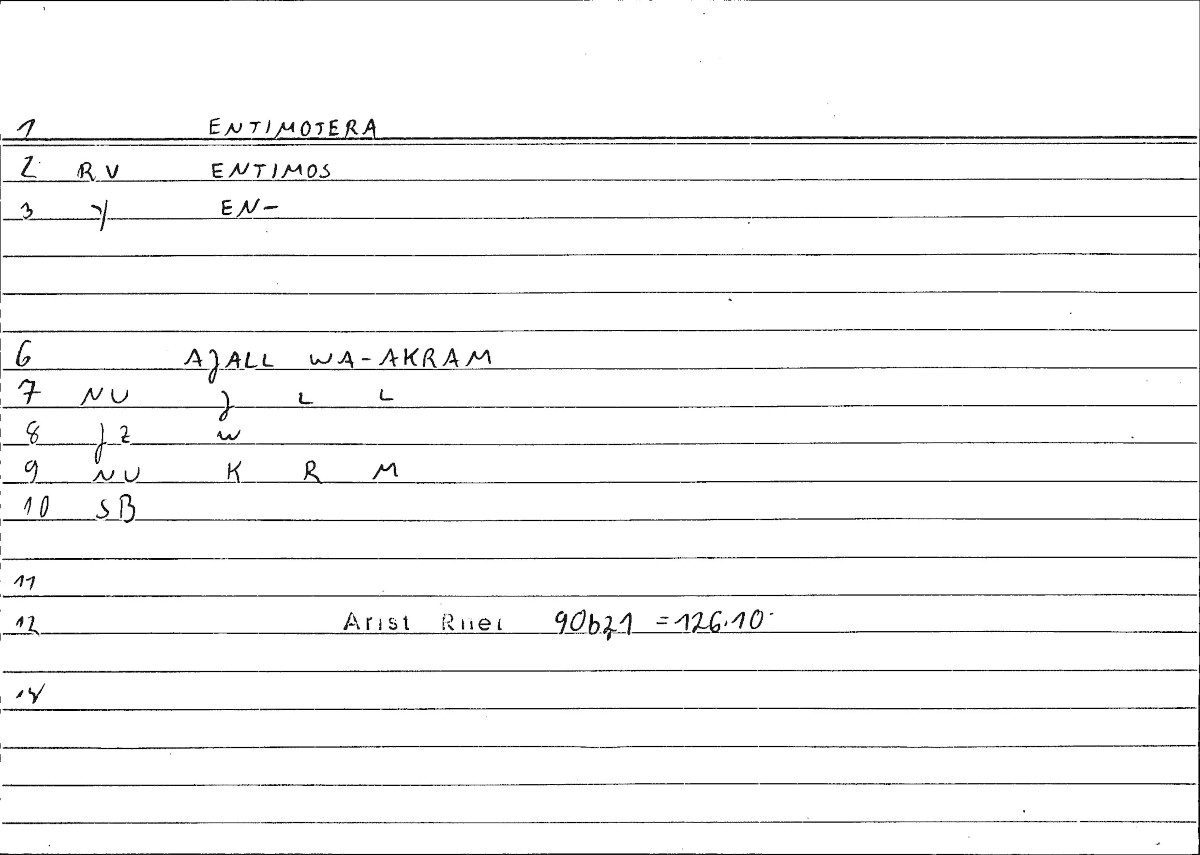 1 ENTIMOTERA
2 RV ENTIMOS
3 y EN-
6 AJALL WA-AKRAM
7 NU J L L
8 JZ W
9 NU K R M
10 SB
11
12 Arist Rhet 90b21 = 126.10